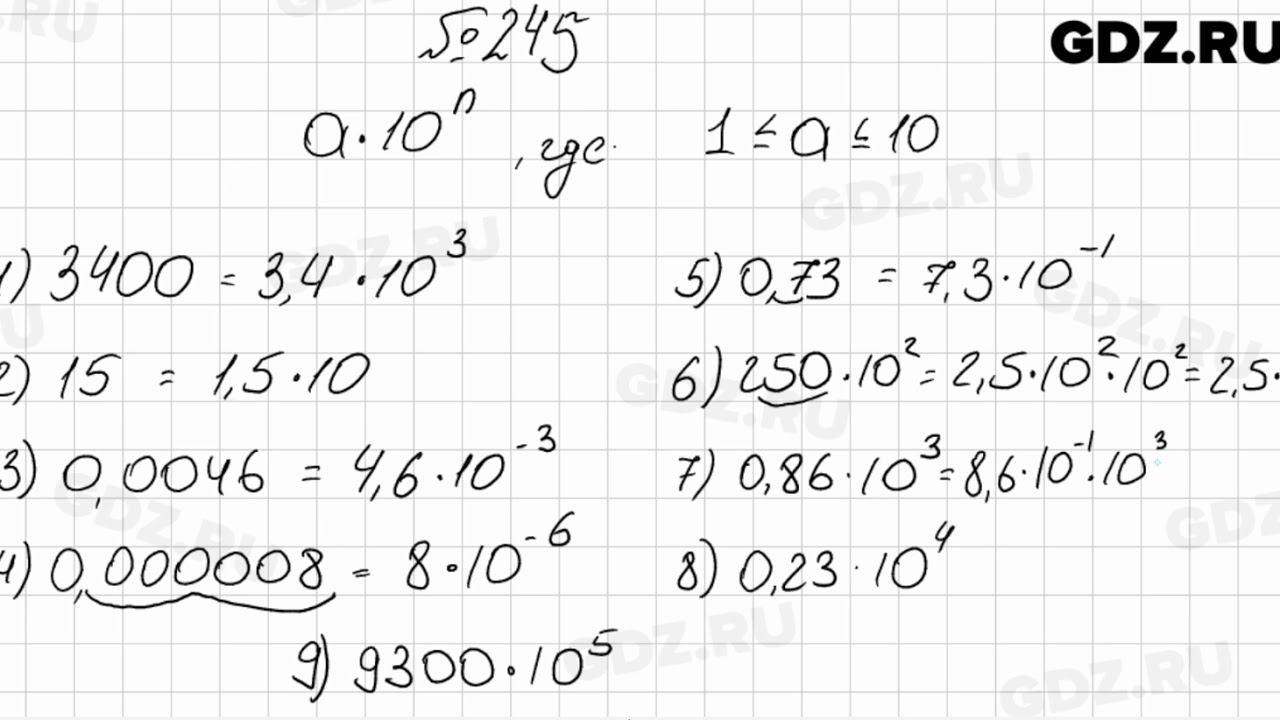 №245
GDZ.RU
a·10ⁿ, где 1 ≤ a ≤ 10
1) 3400 = 3,4·10³
2) 15 = 1,5·10
3) 0,0046 = 4,6·10⁻³
4) 0,000008 = 8·10⁻⁶
5) 0,73 = 7,3·10⁻¹
6) 250·10² = 2,5·10²·10² = 2,5·
7) 0,86·10³ = 8,6·10⁻¹·10³
8) 0,23·10⁴
9) 9300·10⁵